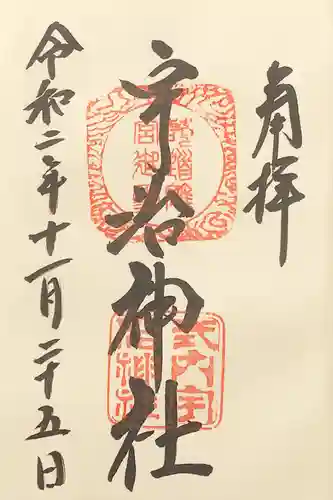 奉拝
宇治神社
令和二年十一月二十五日